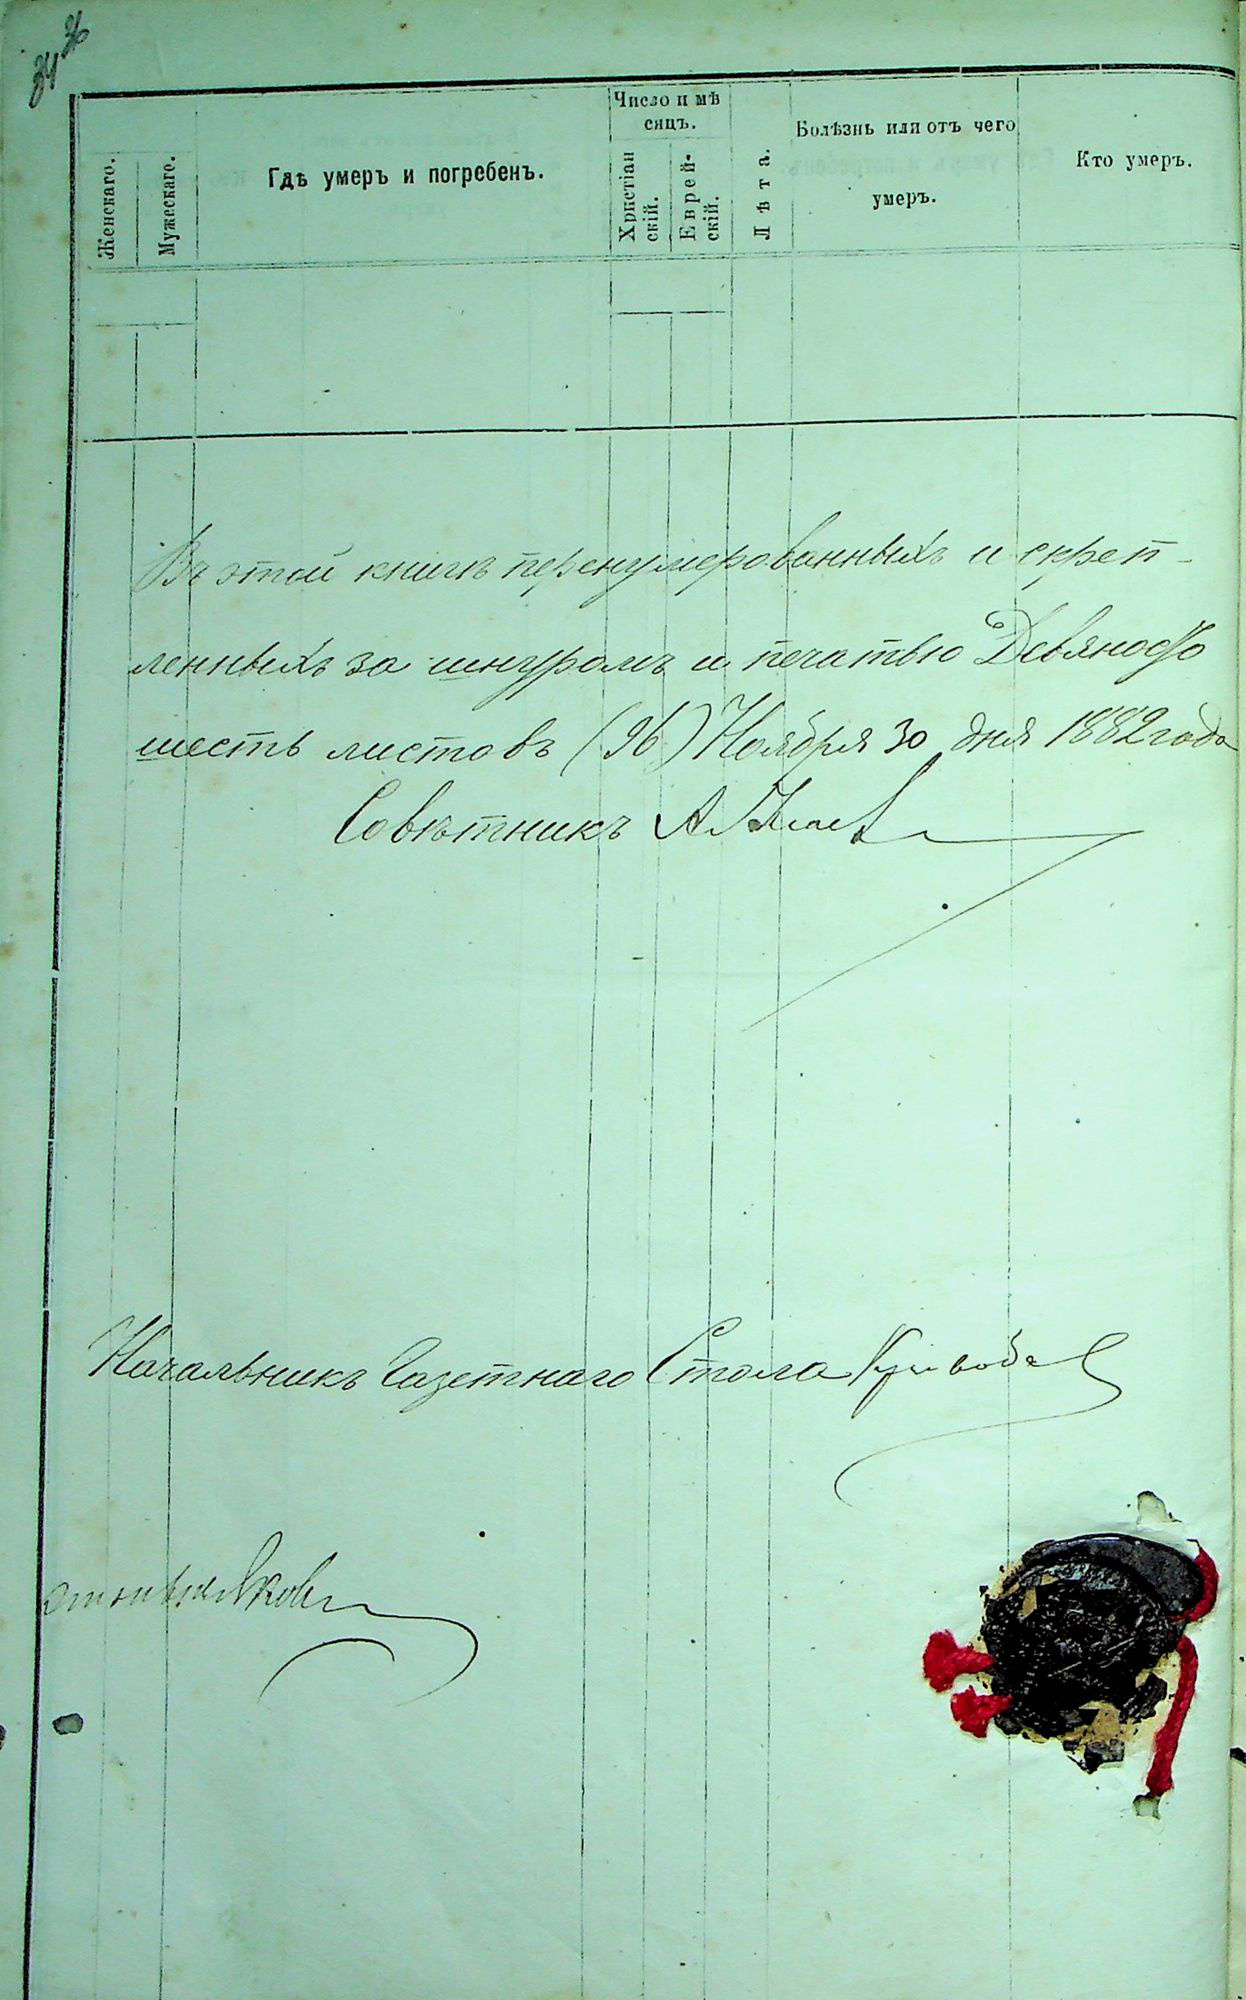 96
Женскаго.
Мужескаго.
Гдѣ умеръ и погребенъ.
Число и мѣ
сяцъ.
Христіан
скій.
Еврей-
скій.
Лѣта.
Болѣзнь или отъ чего
умеръ.
Кто умеръ.
Въ этой книгѣ перенумерованныхъ и скреп-
ленныхъ за шнуромъ и печатью Девяносто
шесть листовъ (96) Ноября 30 дня 1882 года
Совѣтникъ А.
Начальникъ Газетнаго Стола